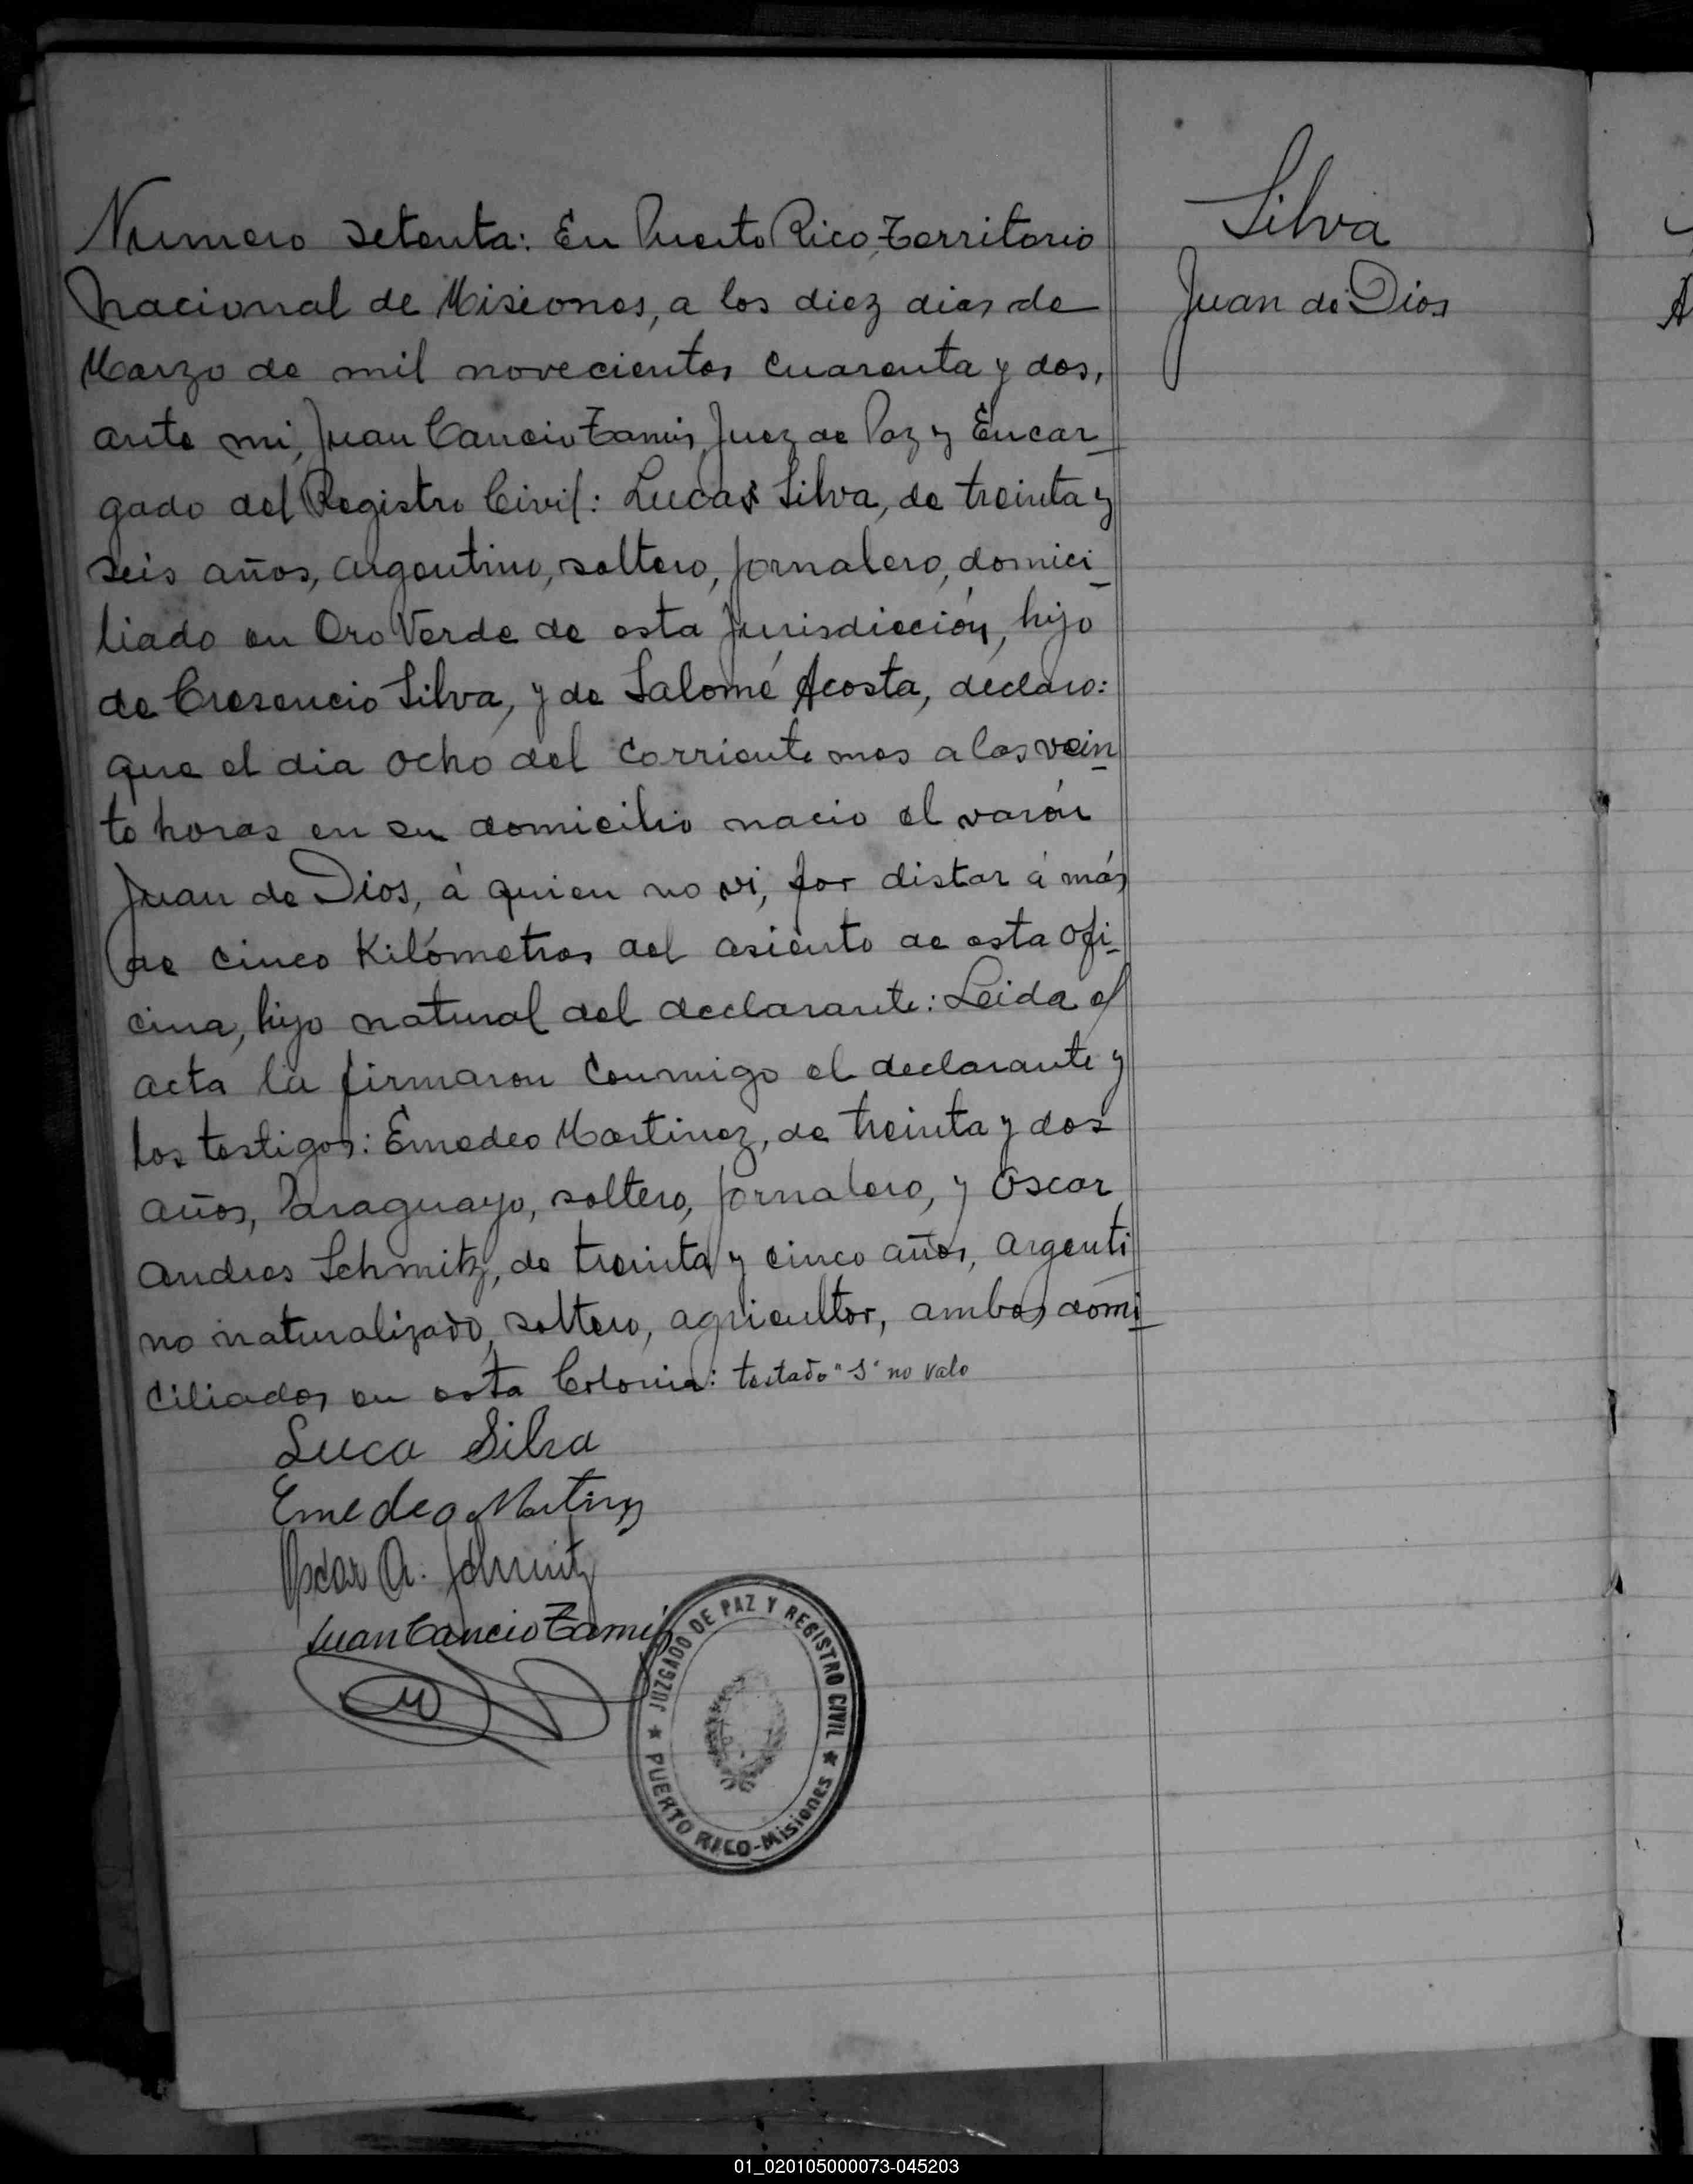 Numero setenta: En Puerto Rico, Territorio
Nacional de Misiones, a los diez dias de
Marzo de mil novecientos cuarenta y dos,
ante mi, Juan Cancio Zamis, Juez de Paz y Encar_
gado del Registro Civil: Lucas Silva, de treinta y
seis años, argentino, soltero, jornalero, domici_
liado en Oro Verde de esta jurisdicción, hijo
de Cresencio Silva, y de Salomé Acosta, declaro:
que el dia ocho del corriente mes a las vein_
te horas en su domicilio nacio el varón
Juan de Dios, á quien no vi, por distar á más
de cinco Kilómetros del asiento de esta ofi_
cina, hijo natural del declarante: Leida el
acta la firmaron conmigo el declarante y
los testigos: Emedeo Martinez, de treinta y dos
años, Paraguayo, soltero, jornalero, y Oscar
Andres Schmitz, de treinta y cinco años, argenti
no naturalizado, soltero, agricultor, ambos domi_
ciliados en esta Colonia: testado "s" no vale
Luca Silva
Emedeo Martinez
Oscar A. Schmitz
Juan Cancio Zamis
JUZGADO DE PAZ Y REGISTRO CIVIL
PUERTO RICO-Misiones
Silva
Juan de Dios
A
01_020105000073-045203